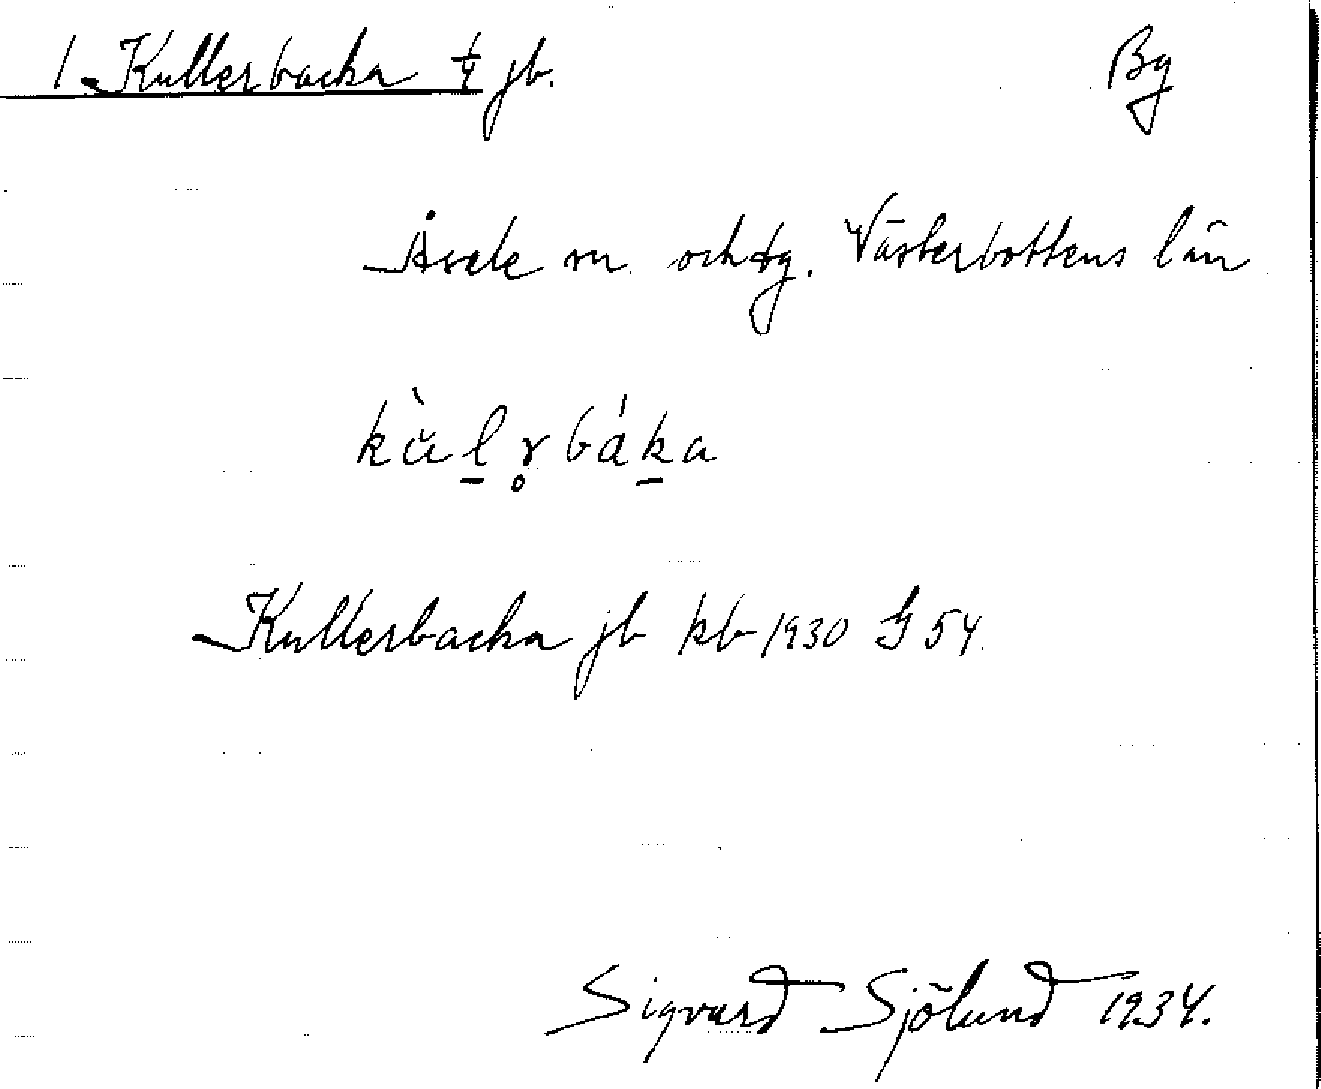 1. Kullerbacka ¼ jb. Bg
Åsele sn. och tg. Västerbottens län
kùl̠r̥báka
Kullerbacka jb kb 1930 G 54.
Sigvard Sjölund 1934.